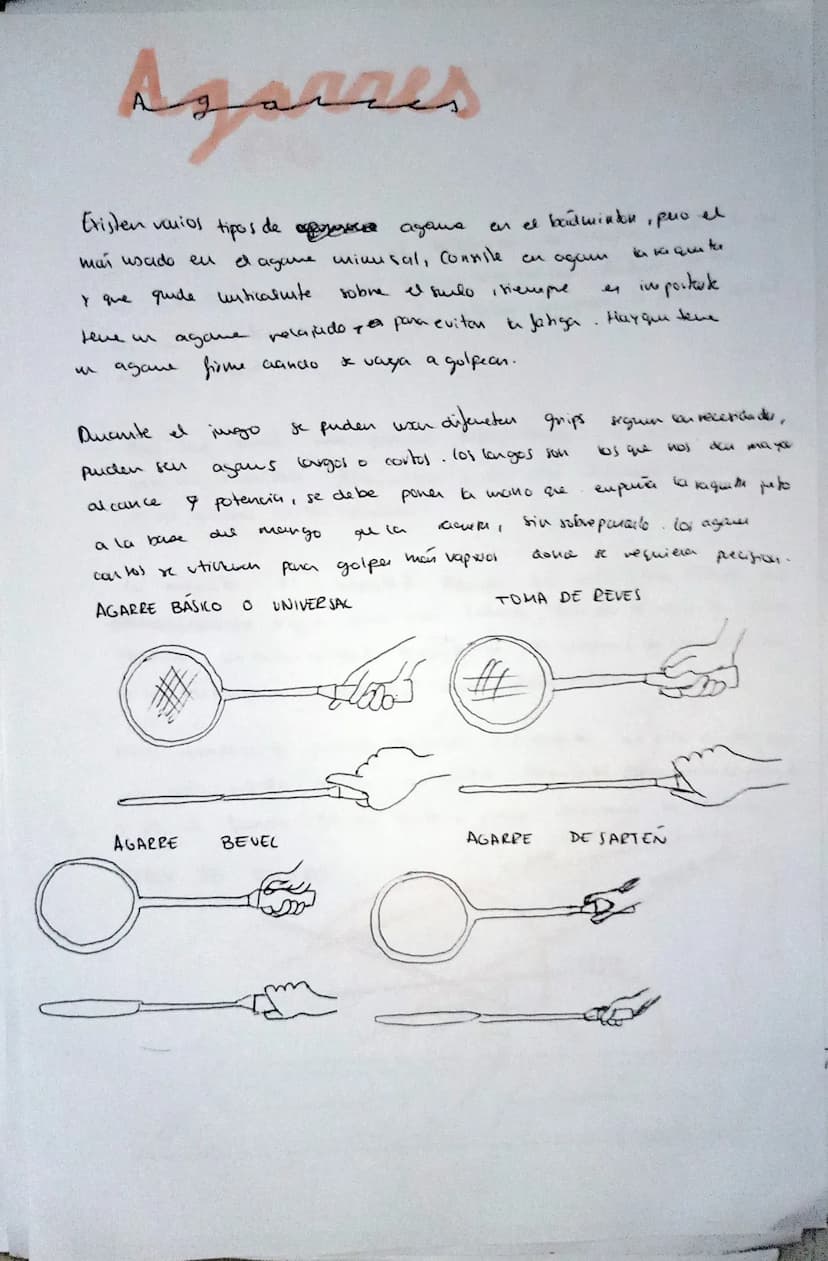 Agarres
Agarres
Existen varios tipos de agarre en el bádminton, pero el
más usado en el agarre universal, Consite en agarrar la raqueta
y que quede verticalmente sobre el suelo, siempre es importante
tener un agarre relajado para evitar la fatiga. Hay que tener
un agarre firme cuando se vaya a golpear.
Durante el juego se pueden usar diferentes grips según las necesidades,
pueden ser agarres largos o cortos. los largos son los que nos dan mayor
alcance y potencia, se debe poner la mano que empuña la raqueta justo
a la base del mango de la raqueta, sin sobrepasarlo. Los agarres
cortos se utilizan para golpes más rápidos donde se requiera precision.
AGARRE BÁSICO O UNIVERSAL
TOMA DE REVES
AGARRE BEVEL
AGARRE DE SARTEÑ